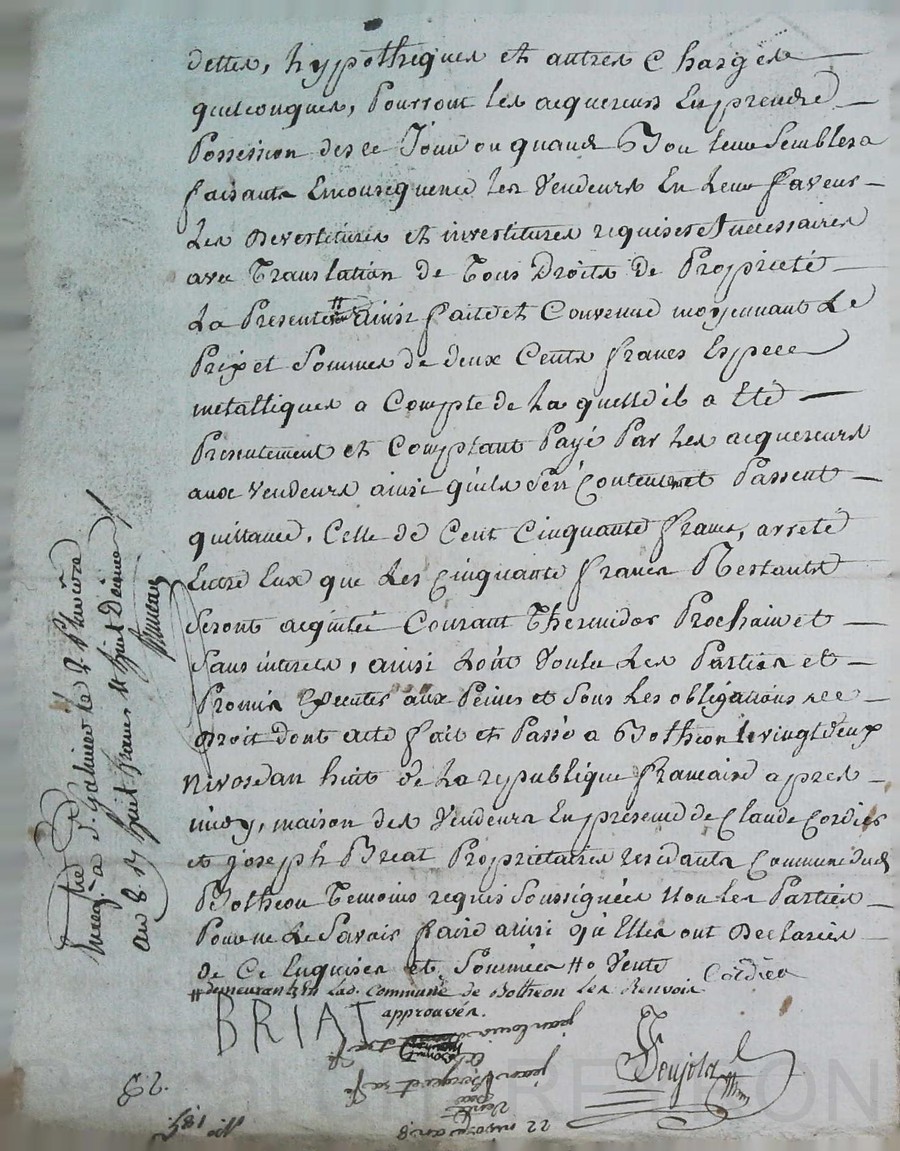 dettes, hypotheques et autres Charges
quelconques, Pourront les acquereurs En prendre
Possession des ce Jour ou quand Bon leur Semblera
faisants Enconsequence les Vendeurs En leur faveur
Les Devestitures et investitures requises et necessaires
avec Translation de Tous Droits de Proprieté
La Presente # ainsi faite et Convenue moyennant Le
Prix et Sommes de deux Cents francs Espece
metalliques a Compte de La quelle il a Eté
Presentement et Comptant Payé Par Les acquereurs
aux Vendeurs ainsi quils s'en Contentent et Passent
quittance, Celle de Cent Cinquante francs, arreté
Entre Eux que Les Cinquante francs Restants
Seront acquités Courant Thermidor Prochain et
Sans interets, ainsi L'ont Voulu Les Parties et
Promis Executer aux Peines et Sous Les obligations de
Droit dont acte fait et Passé a Botheon le vingt deux
nivose an huit de La republique francaise apres
midy, maison des Vendeurs En presence de Claude Cordier
et joseph Breat Proprietaires residants Commune dud
Botheon Temoins requis Soussignés Non Les Parties
Pour ne Le Savoir faire ainsi qu'Elles ont Declarées
de Ce Enquises et Sommées # o Vente Cordier
# demeurants En Lad. Commune de Botheon Les Renvois
approuvés.
BRIAT
Enregtré a St Galmier le 8 Pluviôse
an 8 R/ huit francs 
jean louis
jean Berger et sa fe
Vente
22 nivose an 8